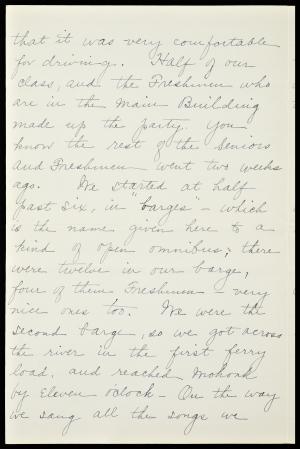 that it was very comfortable
for driving. Half of our
class, and the Freshmen who
are in the Main Building
made up the party. You
know the rest of the Seniors
and Freshmen went two weeks
ago. We started at half
past six, in "barges" - which
is the name given here to a
kind of open omnibus; there
were twelve in our barge,
four of them Freshmen - very
nice ones too. We were the
second barge, so we got across
the river in the first ferry
load, and reached Mohonk
by Eleven o'clock - On the way
we sang all the songs we